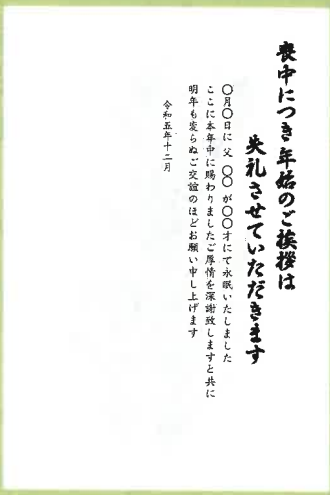 喪中につき年始のご挨拶は
失礼させていただきます
〇月〇日に 父 〇〇 が〇〇才にて永眠いたしました
ここに本年中に賜わりましたご厚情を深謝致しますと共に
明年も変らぬご交誼のほどお願い申し上げます
令和五年十二月